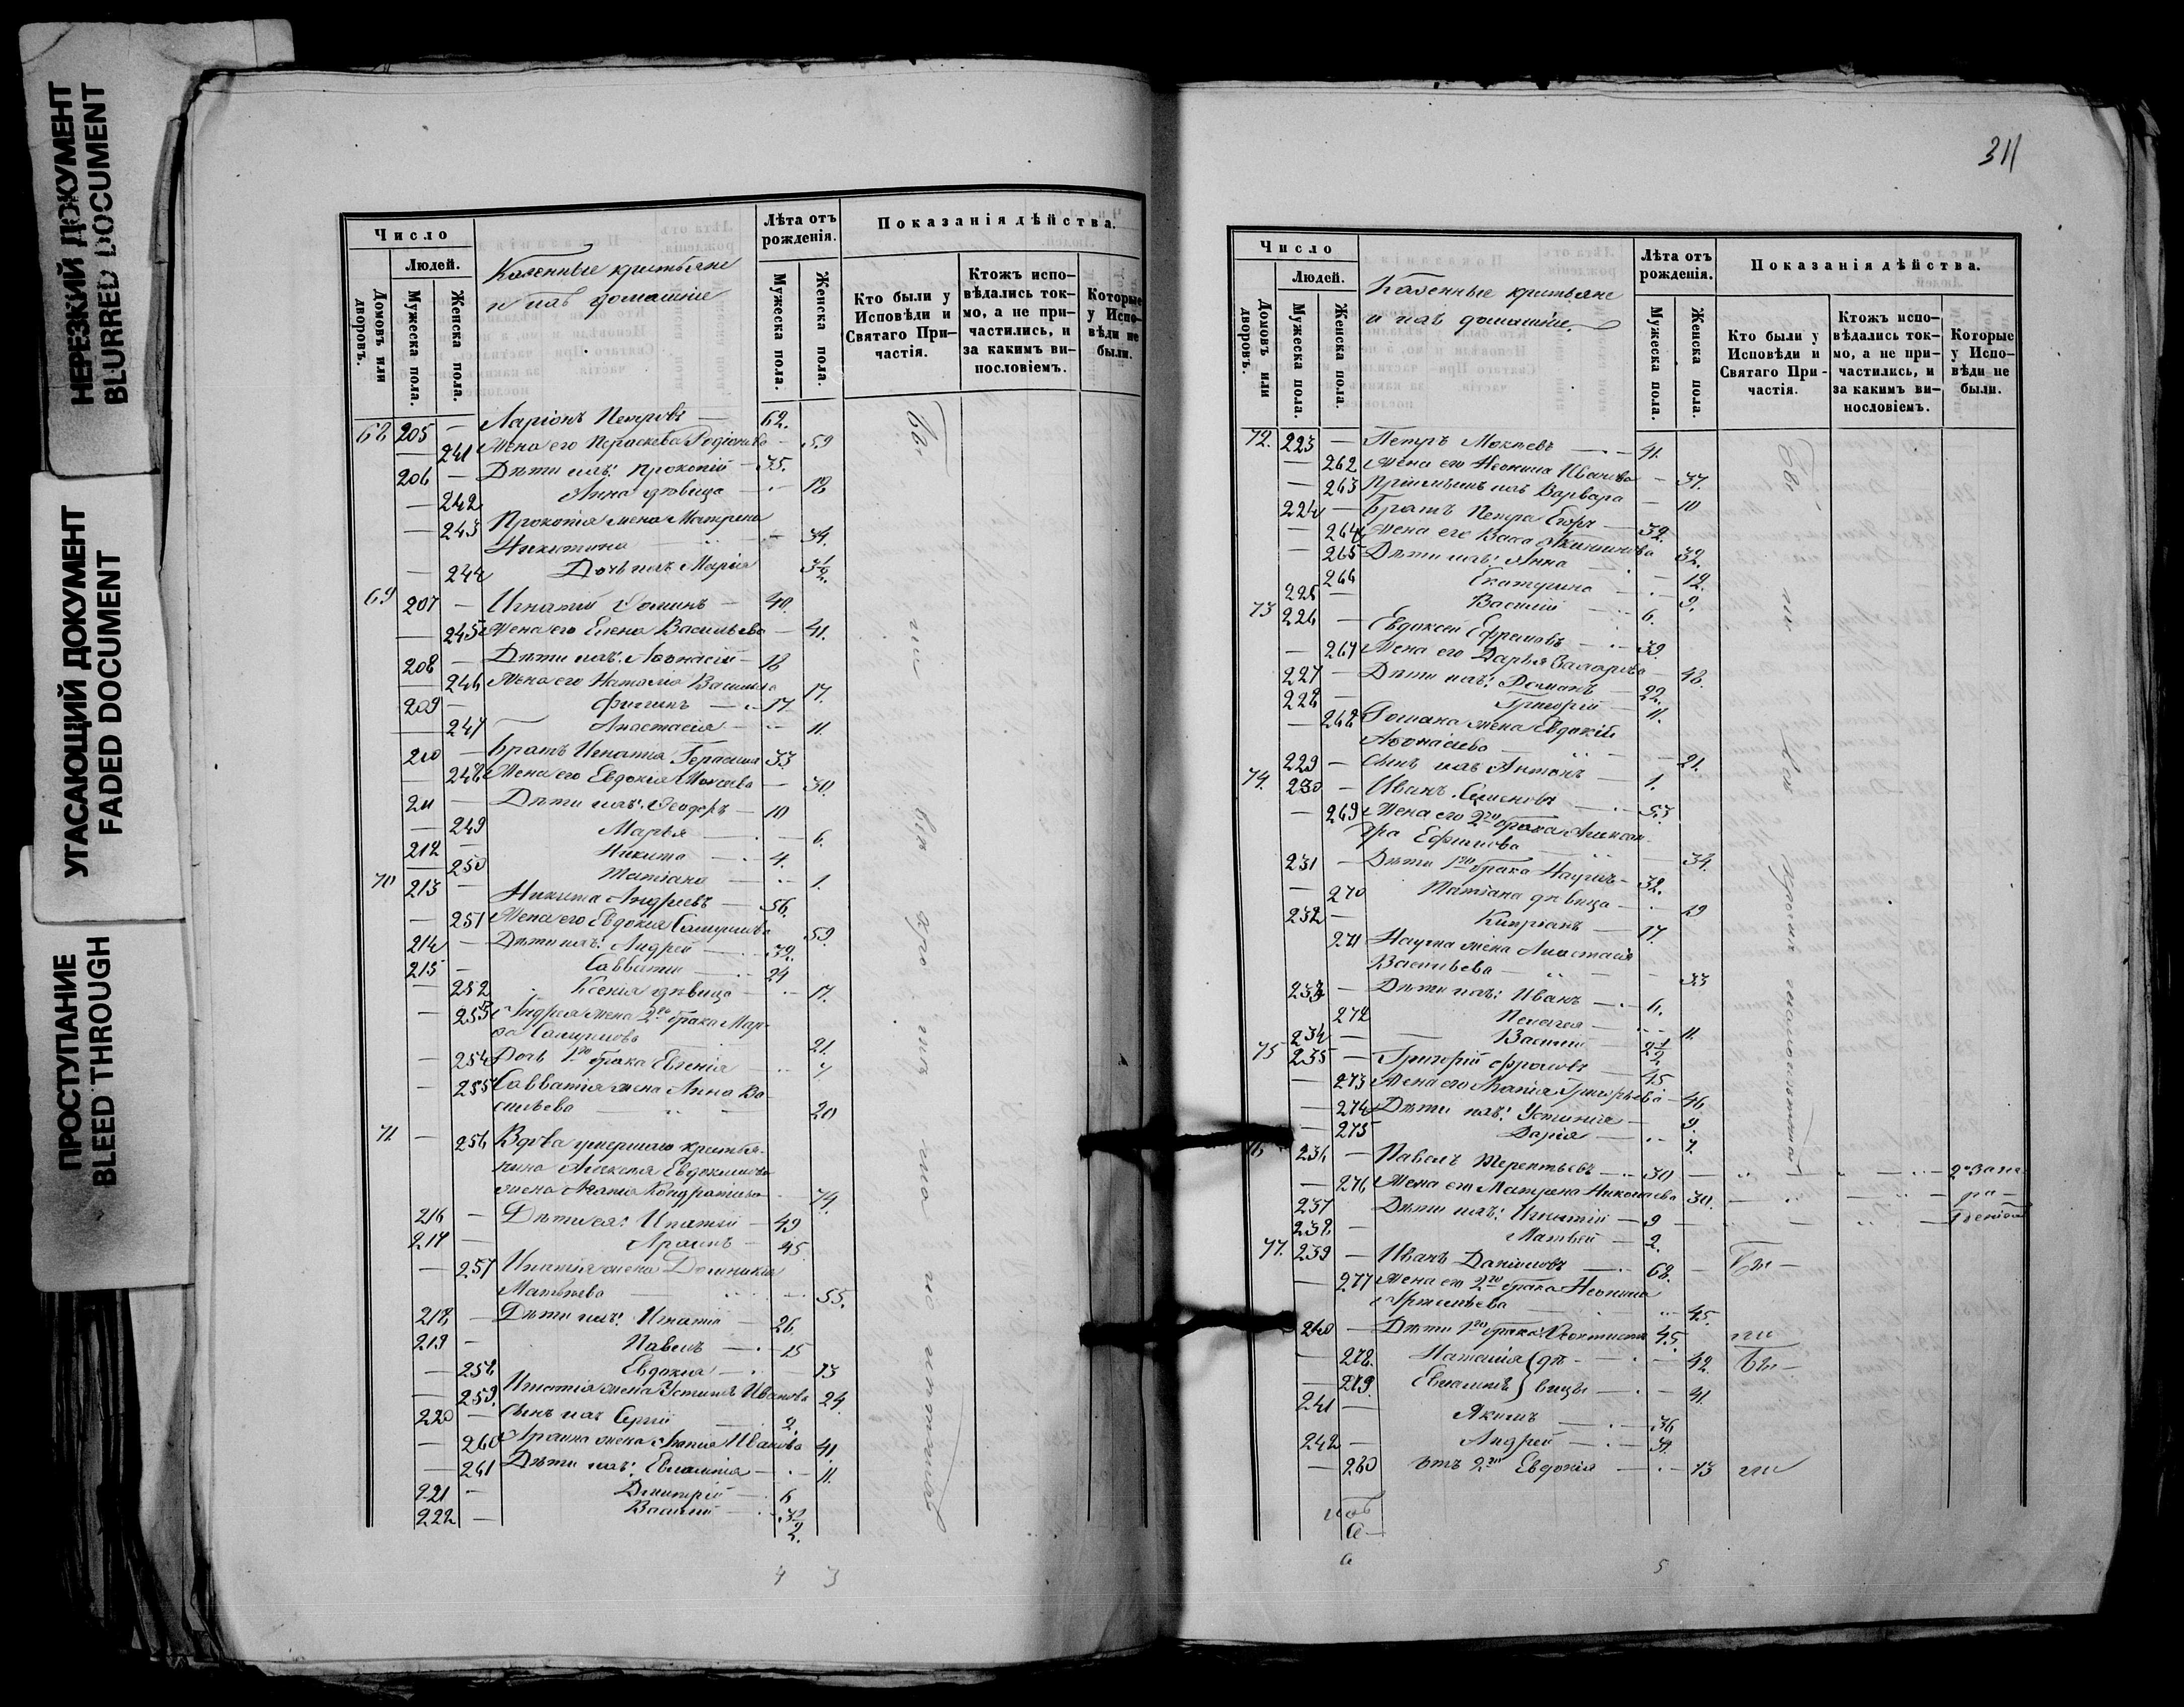 НЕРЕЗКИЙ ДОКУМЕНТ
BLURRED DOCUMENT
УГАСАЮЩИЙ ДОКУМЕНТ
FADED DOCUMENT
ПРОСТУПАНИЕ
BLEED THROUGH
Число
Людей.
Домовъ или дворовъ.
Мужеска пола.
Женска пола.
Казенные крестьяне
и ихъ домашніе
Лѣта отъ рожденія.
Мужеска пола.
Женска пола.
Показанія дѣйства.
Кто были у Исповѣди и Святаго При-частія.
Ктожъ испо-вѣдались ток-мо, а не при-частились, и за какимъ ви-нословіемъ.
Которые у Испо-вѣди не были.
68 205 — Ларіонъ Петровъ — 62.
— 241 Жена его Параскева Родіонова — 59
206 — Дѣти ихъ: Прокопій — 35.
— 242 Анна дѣвица — 18
— 243 Прокопія жена Матрена
Никитина — 34.
— 244 Дочь ихъ Марія 3½
69 207 — Игнатій Ѳоминъ — 40.
— 245 Жена его Елена Васильева — 41.
208 — Дѣти ихъ: Аѳонасій — 18
— 246 Жена его Наталья Васильева 17.
209 — Филипъ — 17
— 247 Анастасія — 11.
210 — Братъ Игнатія Герасимъ 33.
— 248 Жена его Евдокія Мокеева — 30.
211 — Дѣти ихъ: Ѳеодоръ — 10
— 249 Марья — 6.
212 — Никита — 4.
— 250 Татіана — 1.
70 213 — Никита Андреевъ — 56.
— 251 Жена его Евдокія Самуилова 59.
214 — Дѣти ихъ: Андрей — 32.
215 — Савватій — 24
— 252 Ксенія дѣвица — 17.
— 253 Андрея жена 2го брака Мар-
ѳа Самуилова 21.
— 254 Дочь 1го брака Евгенія — 7
— 255 Савватія жена Анна Ва-
сильева — 20
71. — 256 Вдова умершаго крестья-
нина Алексея Евдокимова
жена Агаѳія Кондратьева 74.
216 — Дѣти ея: Игнатій — 49
217 — 45
— 257 Игнатія жена Домникія
Матвѣева — 55.
218. — Дѣти ихъ: Игнатій — 26.
219 — Павелъ — 15
— 258 Евдокія — 13
— 259. Игнатія жена Устинья Иванова 24.
220 — Сынъ ихъ Сергій 2.
— 260 жена Агаѳія Иванова 41.
— 261 Дѣти ихъ: Евлампія — 11.
221 — Димитрій — 6
222 — Василій
Бы
ли
4 3
311
Число
Людей.
Домовъ или дворовъ.
Мужеска пола.
Женска пола.
Казенные крестьяне
и ихъ домашніе.
Лѣта отъ рожденія.
Мужеска пола.
Женска пола.
Показанія дѣйства.
Кто были у Исповѣди и Святаго При-частія.
Ктожъ испо-вѣдались ток-мо, а не при-частились, и за какимъ ви-нословіемъ.
Которые у Испо-вѣди не были.
72. 223 — Петръ Мокеевъ — 41.
— 262 Жена его Неонила Иванова — 37.
— 263 Пріемышъ ихъ Варвара — 10
224 — Братъ Петра Егоръ — 32.
— 264 Жена его Васса 32.
— 265 Дѣти ихъ: Анна — 12.
266 Екатерина — 9.
225 — Василій — 6.
73 226 — Евдоксей Ефремовъ — 39.
— 267 Жена его Дарья 48.
227 — Дѣти ихъ: Романъ — 22.
228 Григорій — 11.
— 268 Романа жена Евдокія
Аѳонасіева — 21.
229 — Сынъ ихъ Антонъ — 1.
74. 230 — Иванъ Семеновъ — 53.
— 269 Жена его 2го брака Алексан-
дра Ефимова — 34.
231 — Дѣти 1го брака Наумъ — 32.
— 270 Татіана дѣвица — 19
232 — Кипріанъ — 17.
271 Наума жена Анастасія
Васильева — 33
233 — Дѣти ихъ: Иванъ — 6.
272 Пелагея — 11.
234 — Василій 2½
75 235 — Григорій Фроловъ — 45.
— 273 Жена его Агаѳія Григорьева — 46
— 274 Дѣти ихъ: Устинія — 9.
— 275 Дарія — 7.
76 236 — Павелъ Терентьевъ — 30
— 276 Жена его Матрена Николаева 30.
237 Дѣти ихъ: Игнатій — 9
238. — Матвей — 2.
77. 239 — Иванъ Даниловъ — 68. — Бы —
— 277 Жена его 2го брака Неонила
Артемьева — 45.
240 — Дѣти 1го брака: Ѳеоктистъ 45. ли
— 278. Наталія } дѣ- — 42 Бы —
— 279. Евлампія } вицы — 41.
241 — Якимъ — 36
242 — Андрей — 31.
— 280 отъ 2го Евдокія — 13 ли
Бы
ли
малолѣтст
5